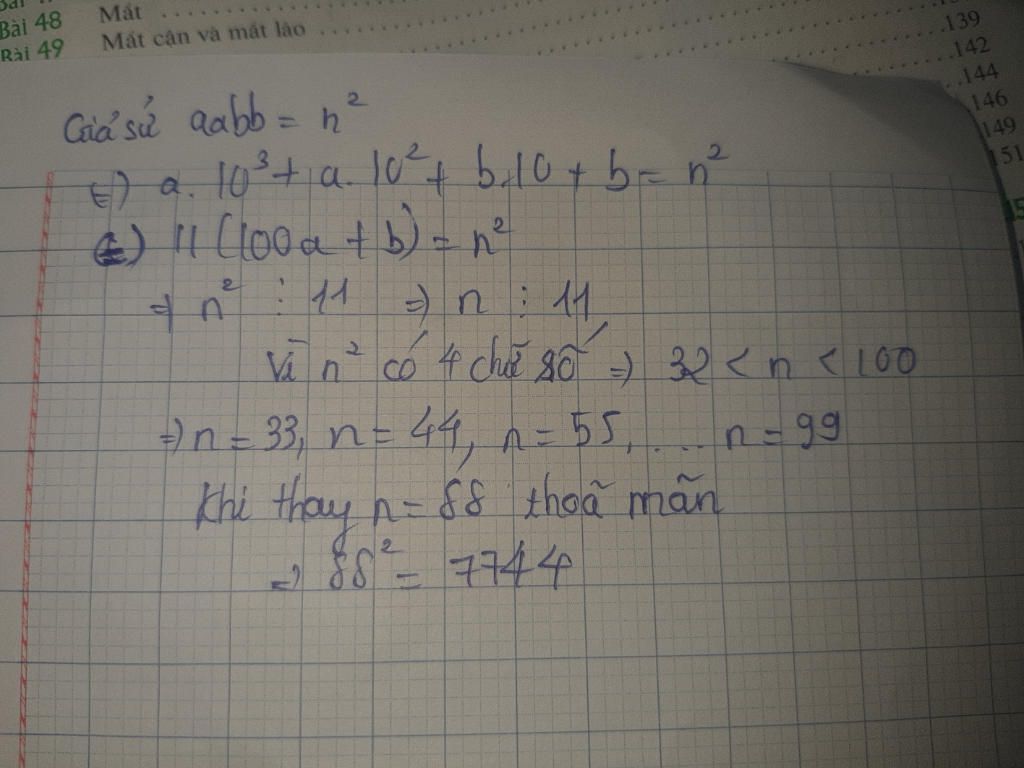 Bài 48 Mắt 139
Bài 49 Mắt cận và mắt lão 142
144
146
149
151
Giả sử aabb = n²
(=) a. 10³ + a. 10² + b.10 + b = n²
(=) 11 (100a + b) = n²
=) n² ⋮ 11 =) n ⋮ 11
Vì n² có 4 chữ số =) 32 < n < 100
=) n = 33, n = 44, n = 55, ... n = 99
Khi thay n = 88 thoã mãn
=) 88² = 7744